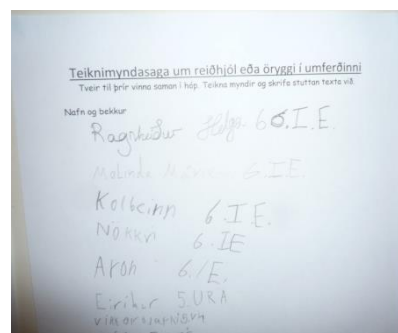 Teiknimyndasaga um reiðhjól eða öryggi í umferðinni
Tveir til þrír vinna saman í hóp. Teikna myndir og skrifa stuttan texta við.
Nafn og bekkur
Ragnheiður Helga 6 6.I.E.
6.I.E.
Kolbeinn 6.I.E.
Nökkvi 6.IE
Aron 6.IE.
Eiríkur 5.URA